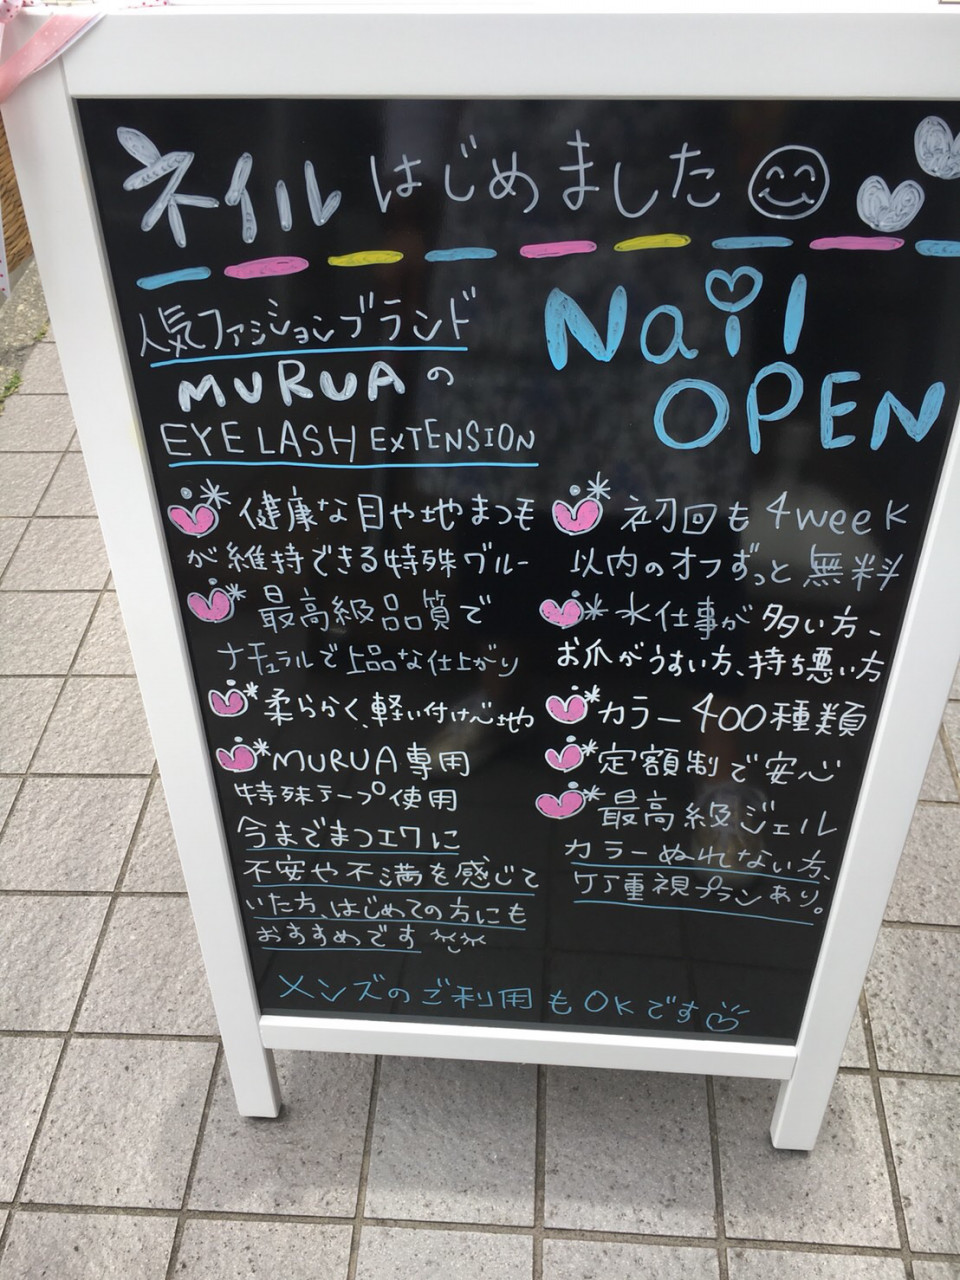 ネイルはじめました
人気ファッションブランド
MURUAの
EYELASH EXTENSION
健康な目や地まつ毛
が維持できる特殊グルー
最高級品質で
ナチュラルで上品な仕上がり
柔らかく、軽い付け心地
MURUA専用
特殊テープ使用
今までまつエクに
不安や不満を感じて
いた方、はじめての方にも
おすすめです
Nail
OPEN
初回も4week
以内のオフずっと無料
水仕事が多い方、
お爪がうすい方、持ち悪い方
カラー400種類
定額制で安心
最高級ジェル
カラーぬれない方、
ケア重視プランあり。
メンズのご利用もOKです